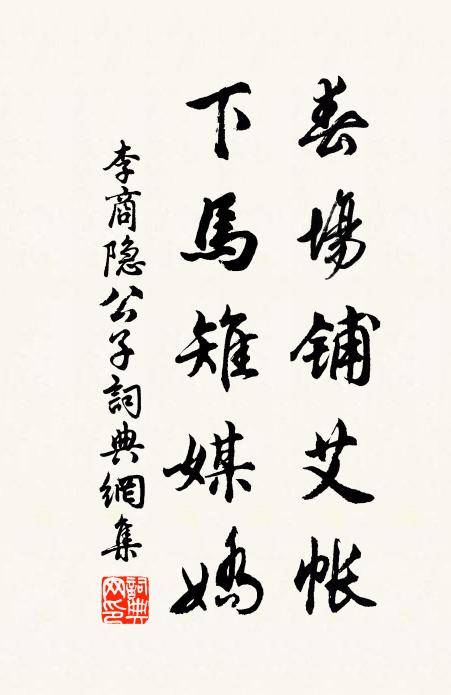 春場鋪艾帳
下馬雉媒嬌
李商隐公子詞典網集
詞典網印